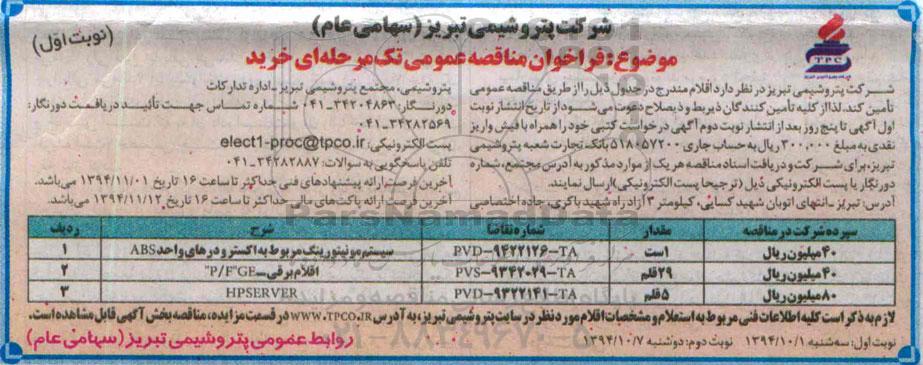 شرکت پتروشیمی تبریز (سهامی عام)
(نوبت اول)
موضوع: فراخوان مناقصه عمومی تک مرحله‌ای خرید
TPC
شرکت پتروشیمی تبریز در نظر دارد اقلام مندرج در جدول ذیل را از طریق مناقصه عمومی
تأمین کند. لذا از کلیه تأمین کنندگان ذیربط و ذیصلاح دعوت می‌شود از تاریخ انتشار نوبت
اول آگهی تا پنج روز بعد از انتشار نوبت دوم آگهی درخواست کتبی خود را همراه با فیش واریز
نقدی به مبلغ ۳۰۰,۰۰۰ ریال به حساب جاری ۵۱۸۰۵۷۲۰۰ بانک تجارت شعبه پتروشیمی
تبریز، برای شرکت و دریافت اسناد مناقصه هر یک از موارد مذکور به آدرس مجتمع، شماره
دورنگار یا پست الکترونیکی ذیل (ترجیحا پست الکترونیکی) ارسال نمایند.
آدرس: تبریز - انتهای اتوبان شهید کسایی، کیلومتر ۳ آزادراه شهید باکری، جاده اختصاصی
پتروشیمی، مجتمع پتروشیمی تبریز - اداره تدارکات
دورنگار: ۳۴۲۰۴۸۶۳-۰۴۱ شماره تماس جهت تأیید دریافت دورنگار:
۳۴۲۸۲۵۶۹-۰۴۱
پست الکترونیکی: elect1-proc@tpco.ir
تلفن پاسخگویی به سوالات: ۳۴۲۸۲۸۸۷-۰۴۱
آخرین فرصت ارائه پیشنهادهای فنی حداکثر تا ساعت ۱۶ تاریخ ۱۳۹۴/۱۱/۰۱ می‌باشد.
آخرین فرصت ارائه پاکت‌های مالی حداکثر تا ساعت ۱۶ تاریخ ۱۳۹۴/۱۱/۱۲ می‌باشد.
ردیف شرح شماره تقاضا مقدار سپرده شرکت در مناقصه
۱ سیستم مونیتورینگ مربوط به اکسترودرهای واحد ABS PVD-۹۴۲۲۱۲۶-TA ۱ست ۴۰ میلیون ریال
۲ اقلام برقی-"P/F"GE PVS-۹۳۴۲۰۲۹-TA ۲۹ قلم ۴۰ میلیون ریال
۳ HPSERVER PVD-۹۳۲۲۱۴۱-TA ۵ قلم ۸۰ میلیون ریال
لازم به ذکر است کلیه اطلاعات فنی مربوط به استعلام و مشخصات اقلام مورد نظر در سایت پتروشیمی تبریز، به آدرس WWW.TPCO.IR در قسمت مزایده، مناقصه بخش آگهی قابل مشاهده است.
نوبت اول: سه‌شنبه ۱۳۹۴/۱۰/۱ نوبت دوم: دوشنبه ۱۳۹۴/۱۰/۷
روابط عمومی پتروشیمی تبریز (سهامی عام)
ParsNamadData